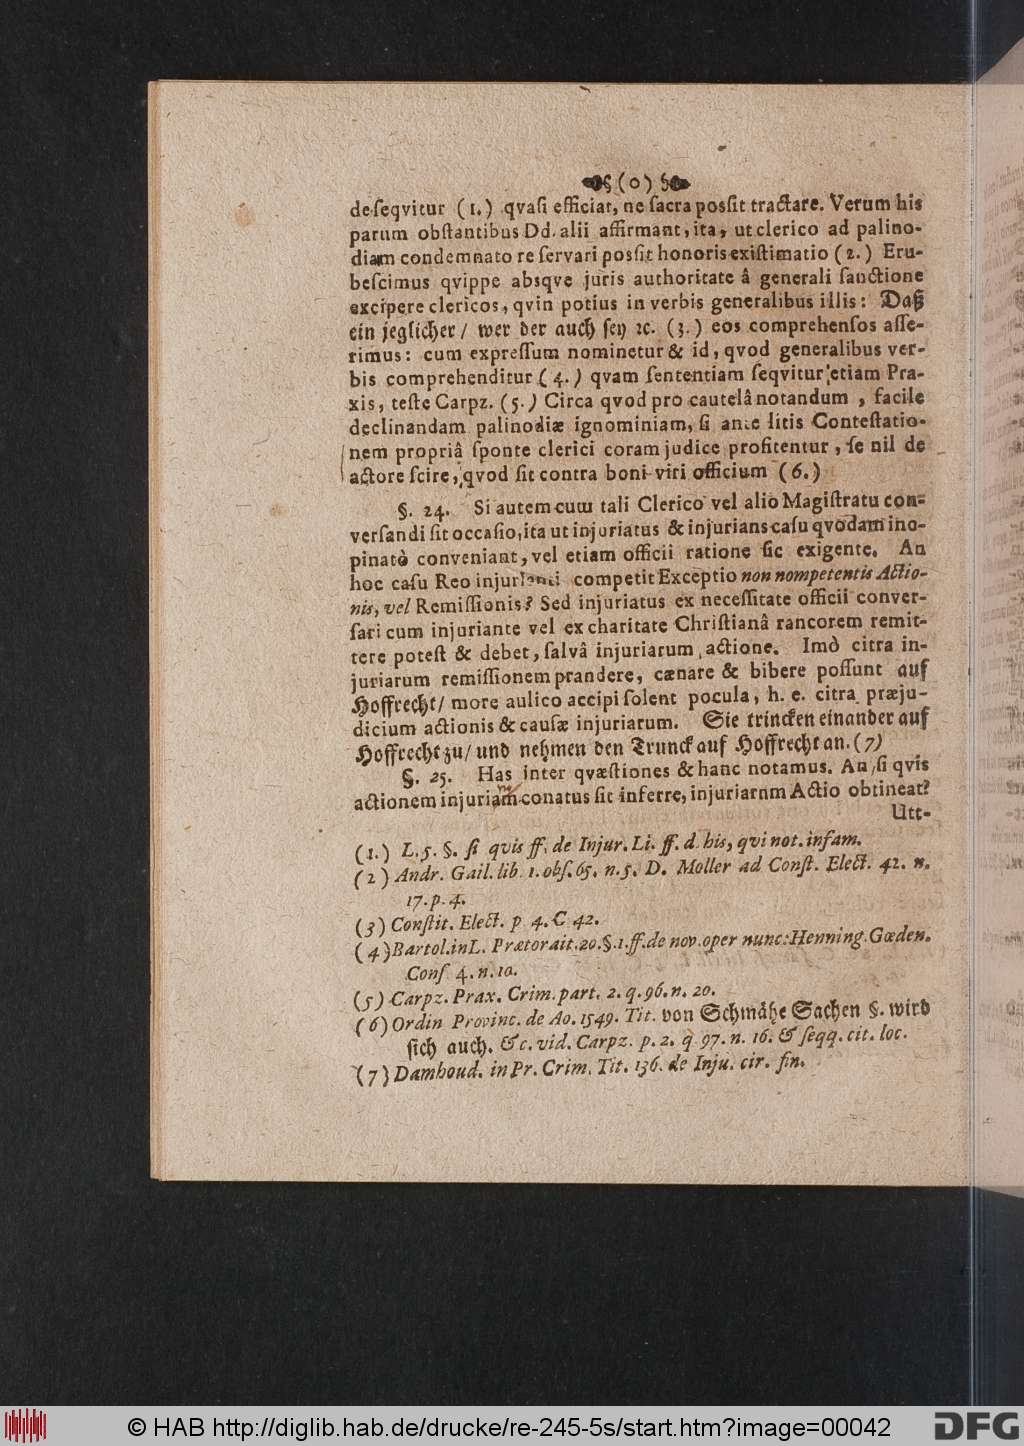 §(o)§
deſeqvitur (1.) qvaſi efficiat, ne ſacra poſſit tractare. Verum his
parum obſtantibus Dd. alii affirmant, ita, ut clerico ad palino-
diam condemnato reſervari poſſit honoris exiſtimatio (2.) Eru-
beſcimus qvippe absqve juris authoritate â generali ſanctione
excipere clericos, qvin potius in verbis generalibus illis: Daß
ein jeglicher/ wer der auch ſey ꝛc. (3.) eos comprehenſos aſſe-
rimus: cum expreſſum nominetur & id, qvod generalibus ver-
bis comprehenditur (4.) qvam ſententiam ſeqvitur etiam Pra-
xis, teſte Carpz. (5.) Circa qvod pro cautelâ notandum, facile
declinandam palinodiæ ignominiam, ſi ante litis Conteſtatio-
nem propriâ ſponte clerici coram judice profitentur, ſe nil de
actore ſcire, qvod ſit contra boni viri officium (6.)
§. 24. Si autem cum tali Clerico vel alio Magiſtratu con-
verſandi ſit occaſio, ita ut injuriatus & injurians caſu qvodam ino-
pinatò conveniant, vel etiam officii ratione ſic exigente. An
hoc caſu Reo injurianti competit Exceptio non nompetentis Actio-
nis, vel Remiſſionis? Sed injuriatus ex neceſſitate officii conver-
ſari cum injuriante vel ex charitate Chriſtianâ rancorem remit-
tere poteſt & debet, ſalvâ injuriarum actione. Imò citra in-
juriarum remiſſionem prandere, cænare & bibere poſſunt auf
Hoffrecht/ more aulico accipi ſolent pocula, h. e. citra præju-
dicium actionis & cauſæ injuriarum. Sie trincken einander auf
Hoffrecht zu/ und nehmen den Trunck auf Hoffrecht an. (7)
§. 25. Has inter qvæſtiones & hanc notamus. An, ſi qvis
actionem injuriam conatus ſit inferre, injuriarnm Actio obtineat?
Utt-
(1.) L. 5. §. ſi quis ff. de Injur. Li. ff. d. his, qvi not. infam.
(2) Andr. Gail. lib. 1. obſ. 65. n. 5. D. Moller ad Conſt. Elect. 42. n.
17. p. 4.
(3) Conſtit. Elect. p 4. C 42.
(4) Bartol. in L. Prætor ait. 20. §. 1. ff. de nov. oper nunc: Henning. Gœden.
Conſ 4. n. 10.
(5) Carpz. Prax. Crim. part. 2. q. 96. n. 20.
(6) Ordin Provinc. de Ao. 1549. Tit. von Schmähe Sachen §. wird
ſich auch. & c. vid. Carpz. p. 2. q 97. n. 16. & ſeqq. cit. loc.
(7) Damhoud. in Pr. Crim. Tit. 136. de Inju. cir. fin.
© HAB http://diglib.hab.de/drucke/re-245-5s/start.htm?image=00042
DFG